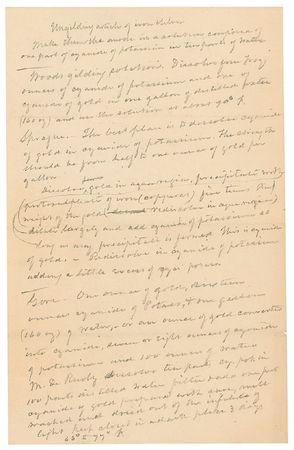 Ungilding articles of iron & silver
Make them the anode in a solution composed of
one part of cyanide of potassium in two parts of water
Woods gilding solution. Dissolve four Troy
ounces of cyanide of potassium and one of
cyanide of gold in one gallon of distilled water
(160 oz) and use the solution at about 90° F.
Sprague. The best plan is to dissolve cyanide
of gold in cyanide of potassium. The strength
should be from half to one ounce of gold per
gallon
Dissolve gold in aqua regia, precipitate with
protosulphate of iron (copperas) five times the
weight of the gold, redissolve in aqua regia
dilute largely and add cyanide of potassium as
long as any precipitate is formed. This is cyanide
of gold. Redissolve in cyanide of potassium
adding a little excess of
Gore. One ounce of gold,
ounces cyanide of Potass, & one gallon
(160 oz) of water, or one ounce of gold converted
into cyanide, seven or eight ounces of cyanide
of potassium and 100 ounces of water
M. de Ruolz dissolves ten parts cy. pot. in
100 parts distilled water filter add one part
cyanide of gold prepared with care, well
washed and dried out of the influence of
light. Keep closed in a dark place 3 days
° F